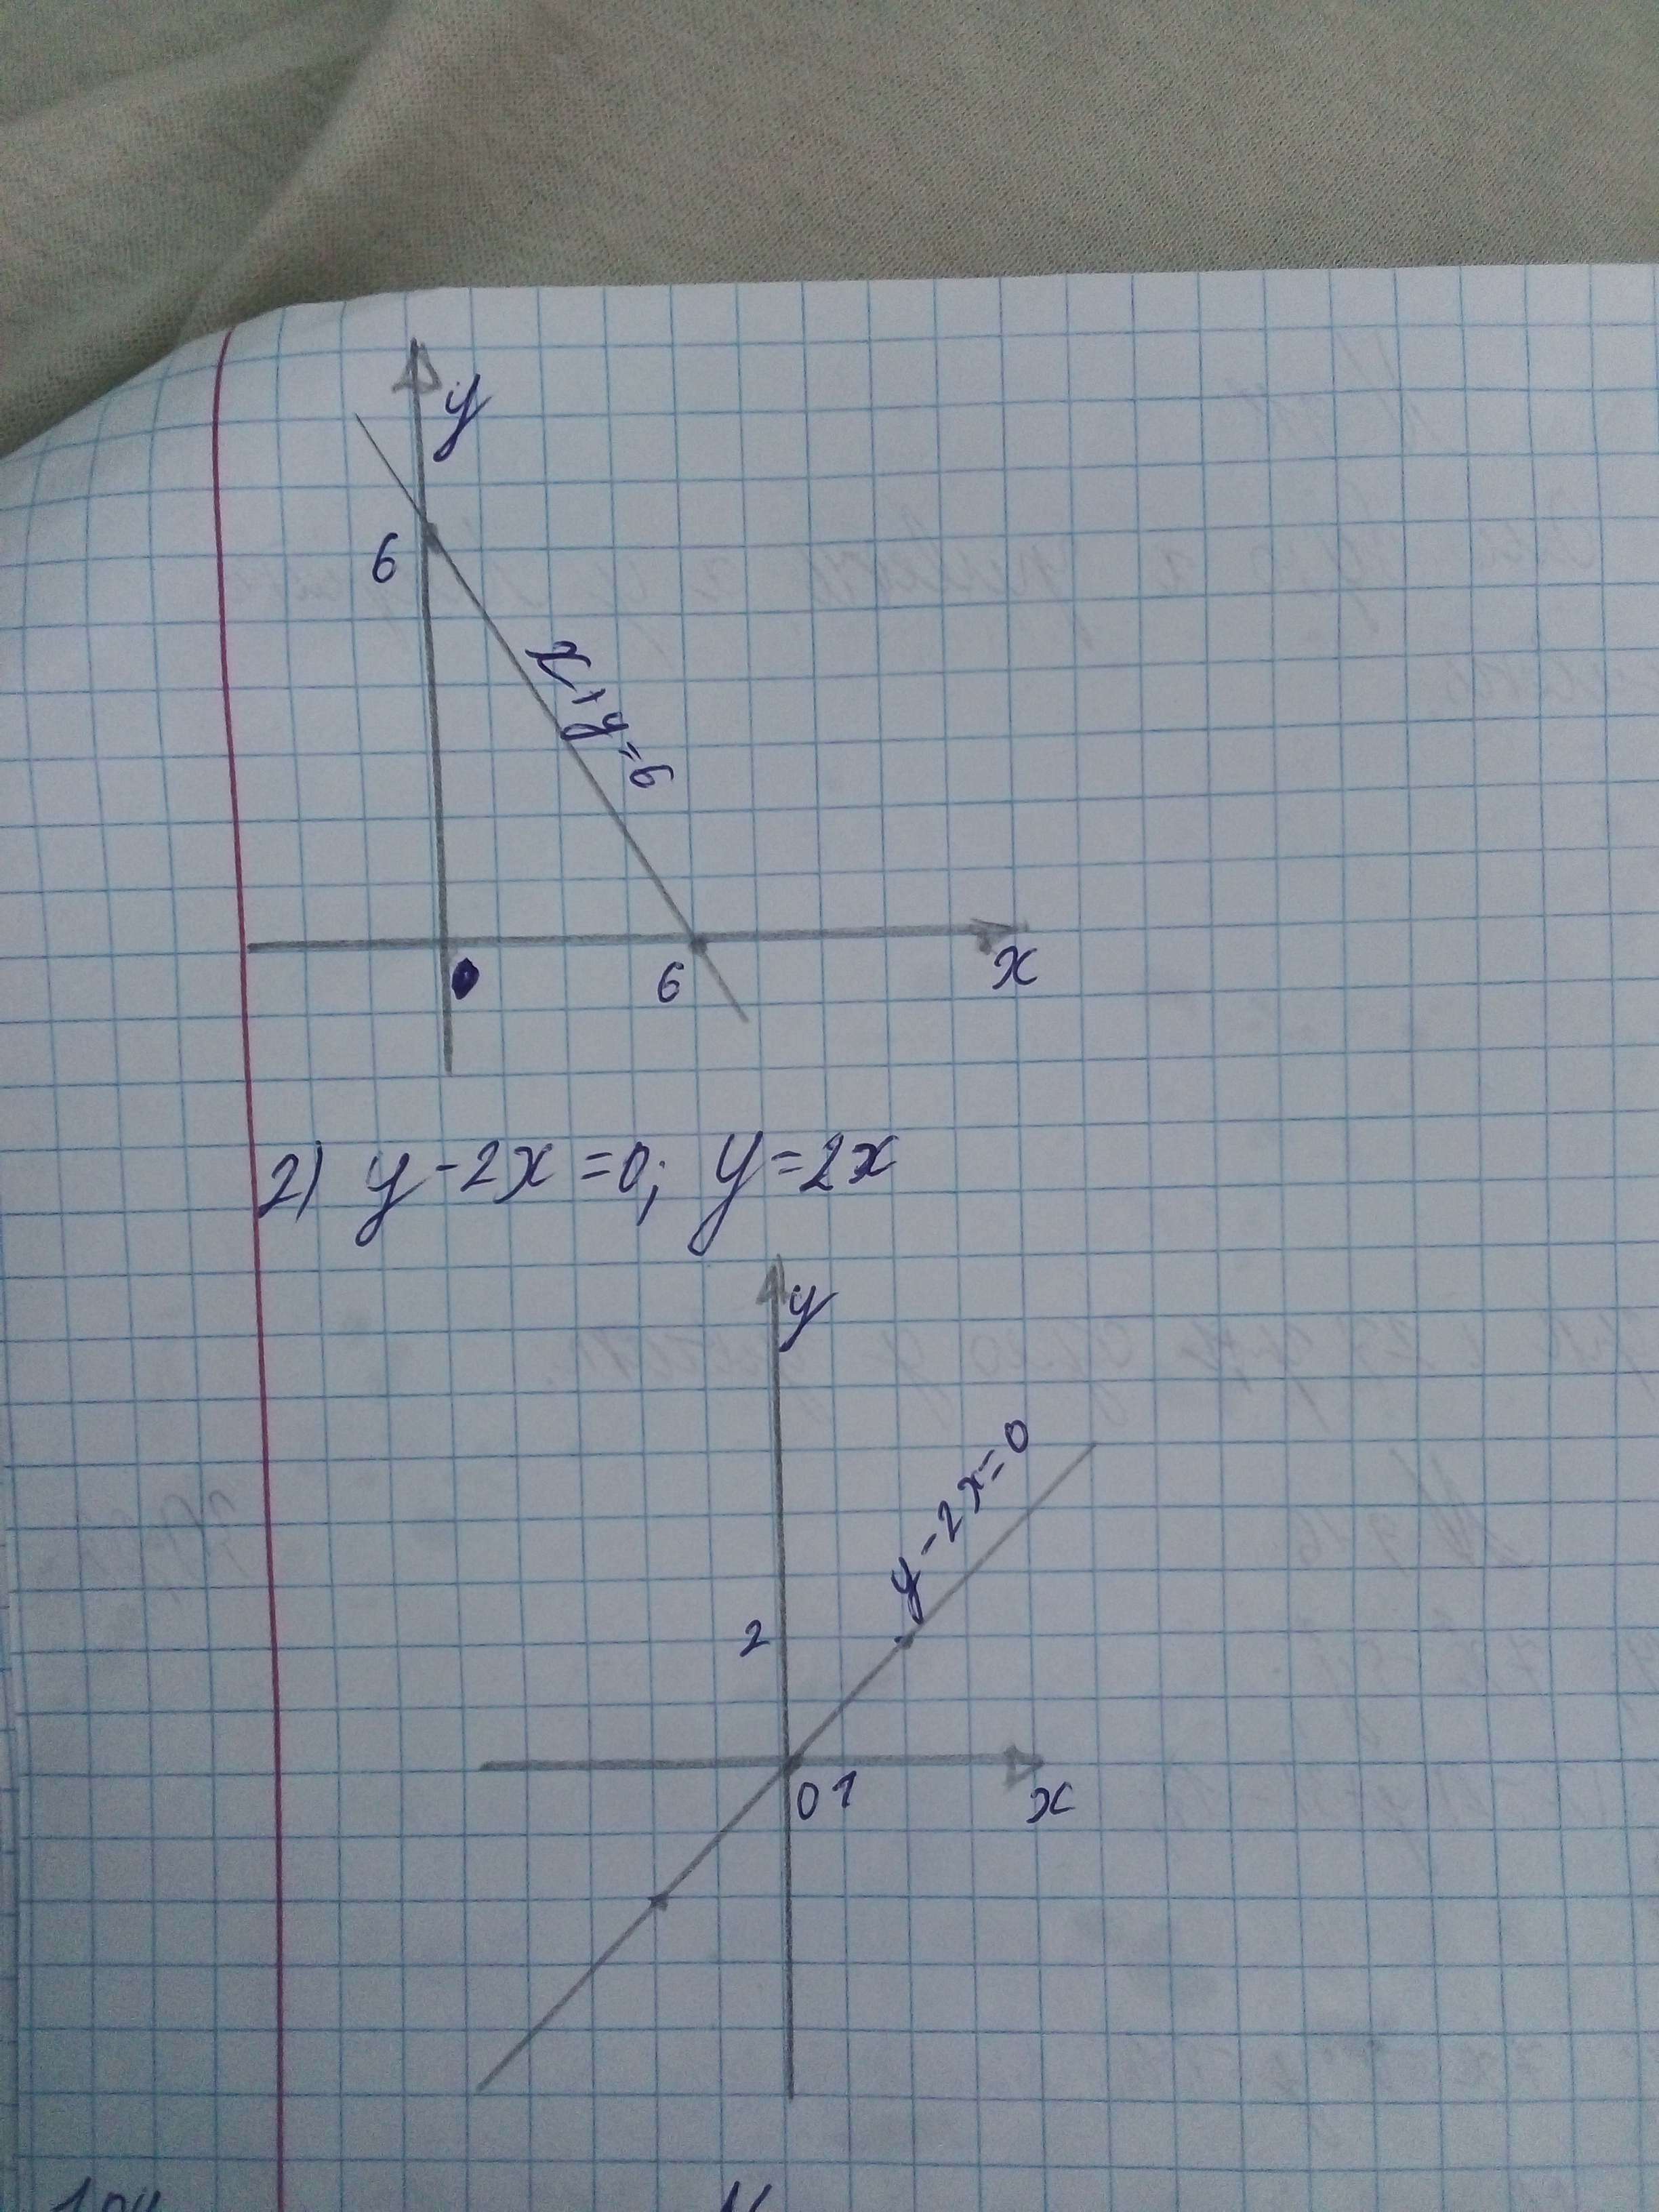 y
6
x+y=6
0
6
x
2) y-2x=0; y=2x
y
y-2x=0
2
0 1
x